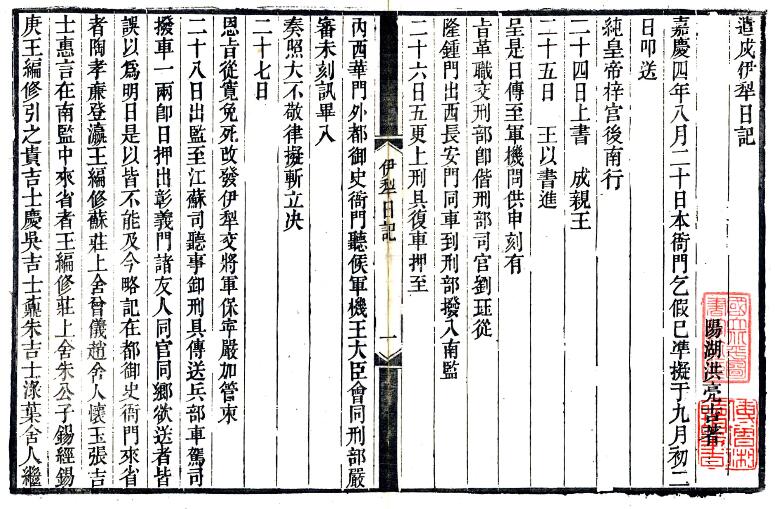 遣戍伊犁日記
陽湖洪亮吉著
嘉慶四年八月二十日本衙門乞假已凖擬于九月初二
日叩送
純皇帝梓宮後南行
二十四日上書　成親王
二十五日　王以書進
呈是日傳至軍機問供申刻有
旨革職交刑部卽偕刑部司官劉珏從
隆鍾門出西長安門同車到刑部撥入南監
二十六日五更上刑具復車押至
伊犁日記
一
內西華門外都御史衙門聽候軍機王大臣會同刑部嚴
審未刻訊畢入
奏照大不敬律擬斬立决
二十七日
恩旨從寬免死改發伊犁交將軍保寧嚴加管束
二十八日出監至江蘇司聽事卸刑具傳送兵部車駕司
撥車一兩卽日押出彰義門諸友人同官同鄉欲送者皆
誤以爲明日是以皆不能及今略記在都御史衙門來省
者陶孝廉登瀛王編修蘇莊上舍曾儀趙舍人懷玉張吉
士惠言在南監中來省者王編修莊上舍朱公子錫經錫
庚王編修引之貴吉士慶吳吉士鼒朱吉士淥葉舍人繼